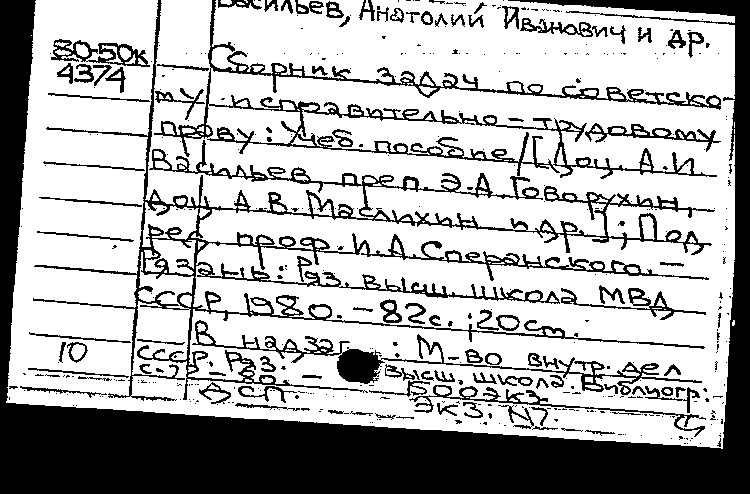 Васильев, Анатолий Иванович и др.
80-50к
4374
Сборник задач по советско-
му исправительно-трудовому
праву: Учеб. пособие / [Доц. А.И.
Васильев, преп. Э.А. Говорухин,
доц. А.В. Маслихин и др.]; Под
ред. проф. И.А. Сперанского. —
Рязань: Ряз. высш. школа МВД
СССР, 1980. - 82с.; 20см.
В надзаг.: М-во внутр. дел
10
СССР. Ряз. высш. школа. Библиогр:
с. 79-80. - 600экз.
ДСП. экз. N7.